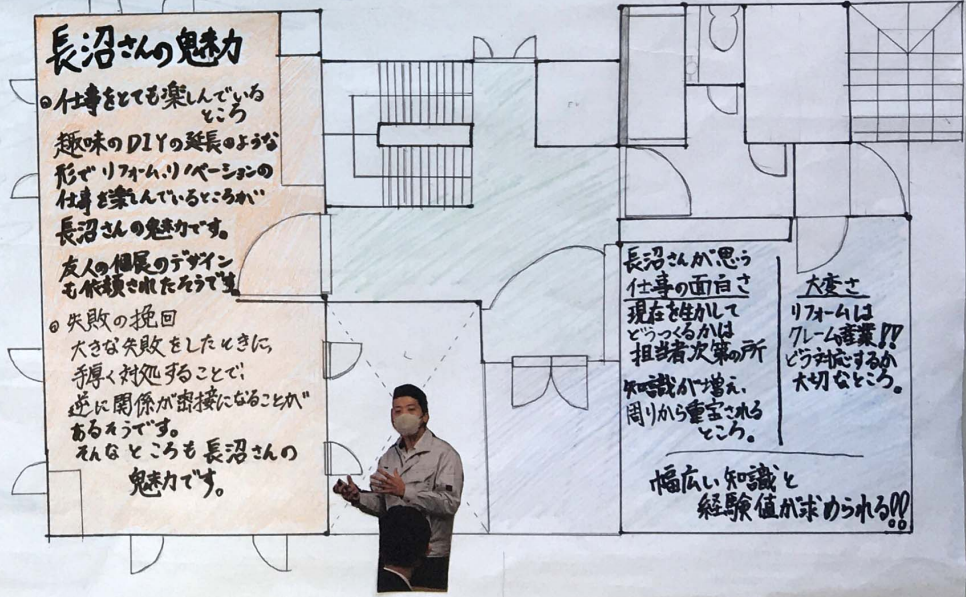 長沼さんの魅力
仕事をとても楽しんでいる
ところ
趣味のDIYの延長のような
形でリフォーム、リノベーションの
仕事を楽しんでいるところが
長沼さんの魅力です。
友人の個展のデザイン
も依頼されたそうです。
失敗の挽回
大きな失敗をしたときに、
手厚く対処することで、
逆に関係が密接になることが
あるそうです。
そんなところも長沼さんの
魅力です。
長沼さんが思う
仕事の面白さ
現在を生かして
どうつくるかは
担当者次第の所
知識が増え、
周りから重宝される
ところ。
大変さ
リフォームは
クレーム産業!!
どう対応するか
大切なところ。
幅広い知識と
経験値が求められる!!